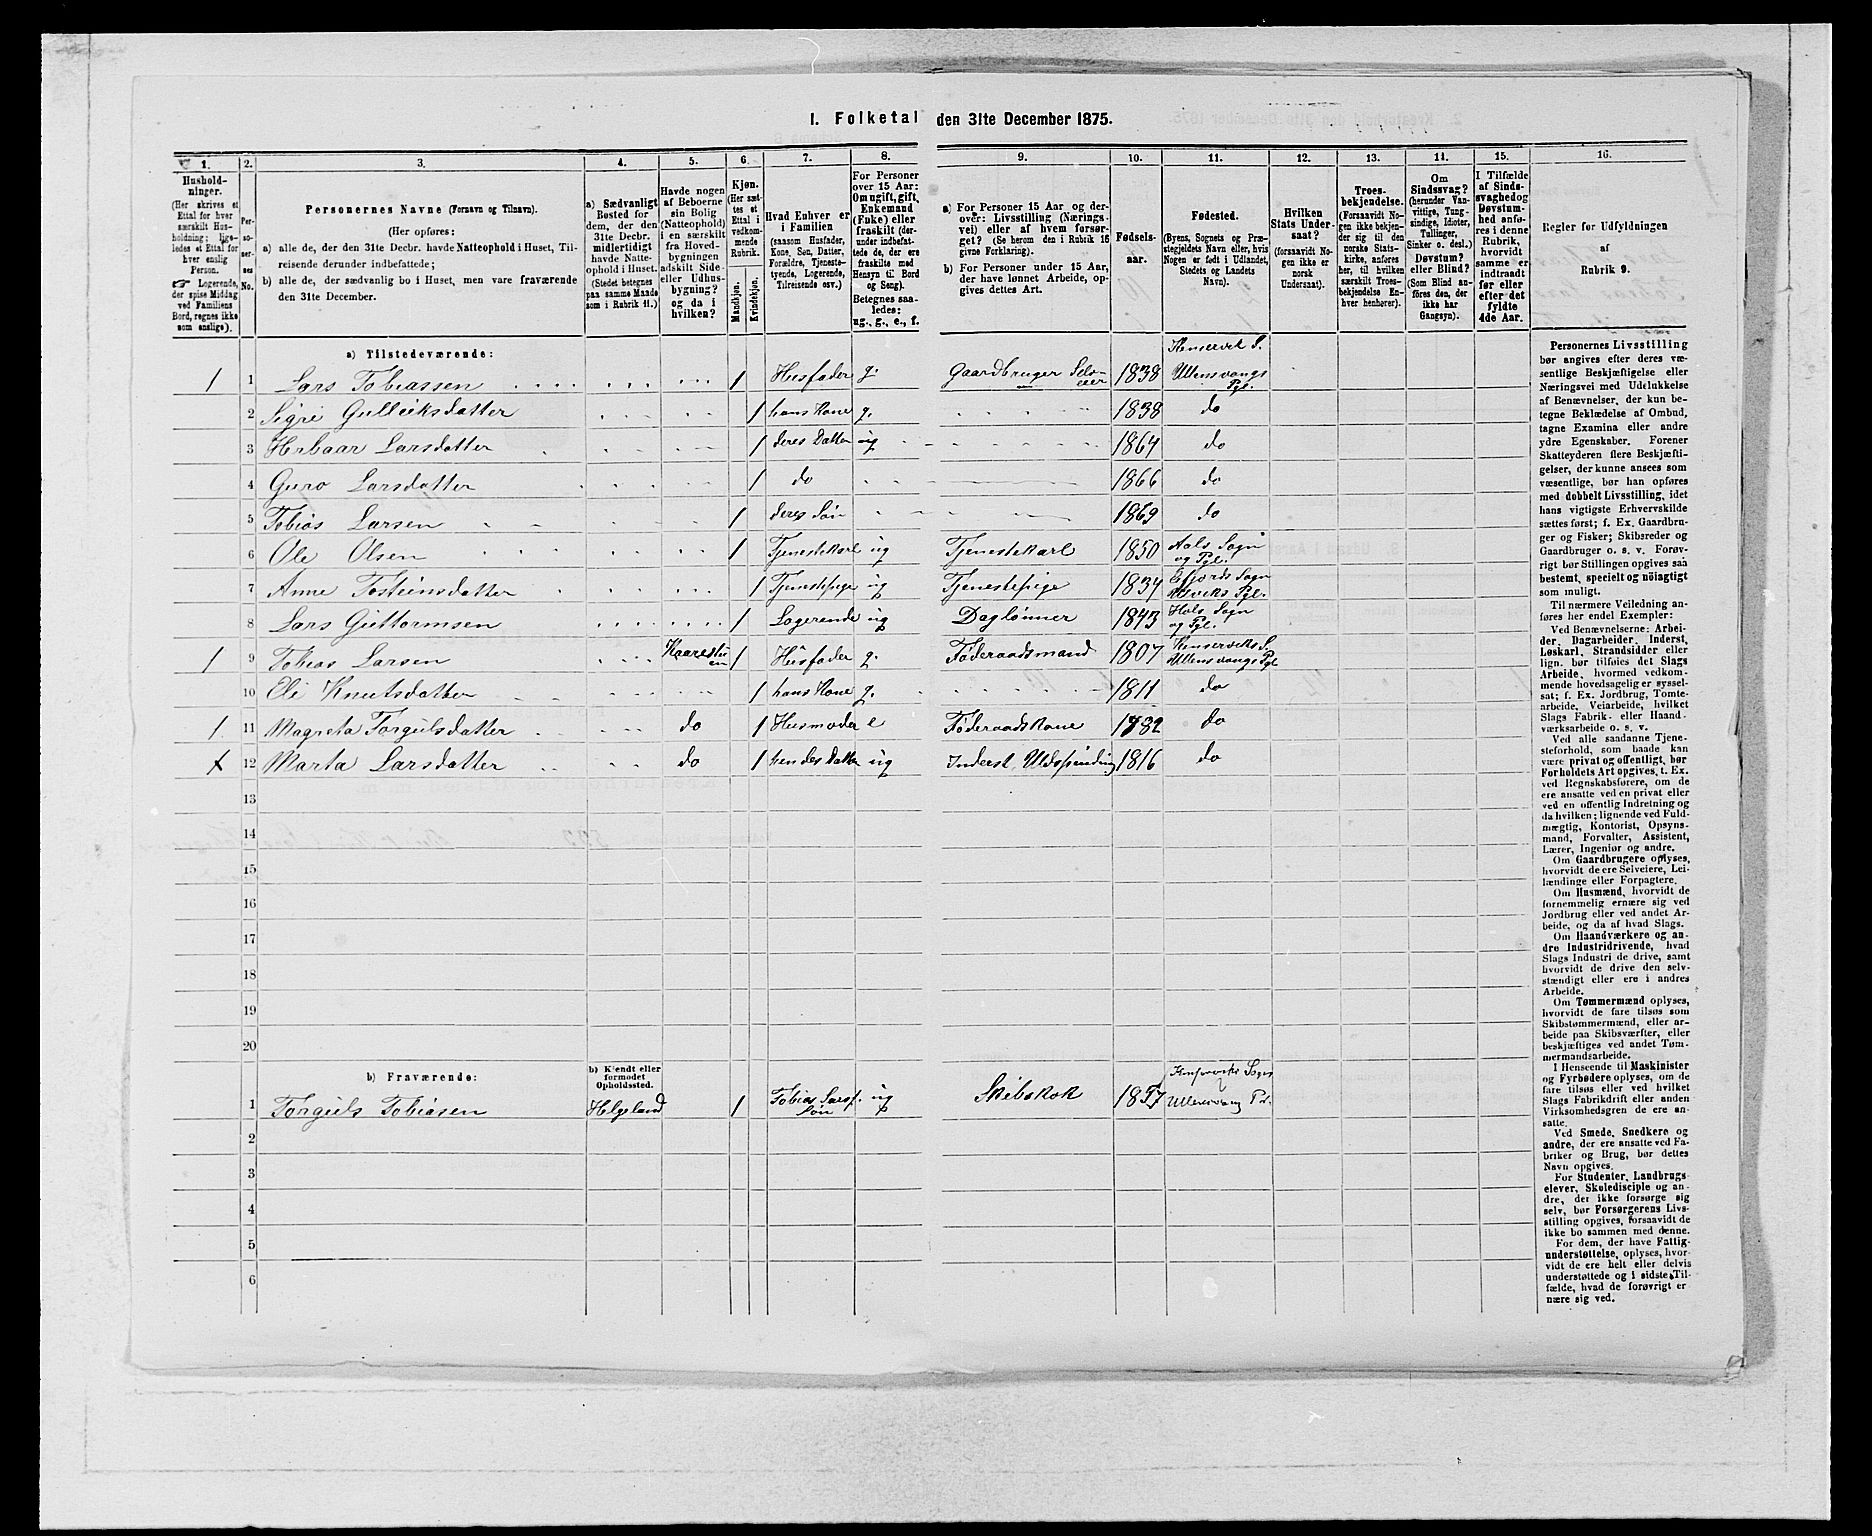 I. Folketal den 31te December 1875.
1. 2. 3. 4. 5. 6. 7. 8. 9. 10. 11. 12. 13. 14. 15. 16.
Hushold-
ninger.
(Her skrives et
Ettal for hver
særskilt Hus-
holdning; lige-
ledes et Ettal for
hver enslig
Person.
☞ Logerende,
der spise Middag
ved Familiens
Bord, regnes ikke
som enslige).
Per-
so-
ner-
nes
No.
Personernes Navne (Fornavn og Tilnavn).
(Her opføres:
a) alle de, der den 31te Decbr. havde Natteophold i Huset, Til-
reisende derunder indbefattede;
b) alle de, der sædvanlig bo i Huset, men vare fraværende
den 31te December.
a) Sædvanligt
Bosted for
dem, der den
31te Decbr.
midlertidigt
havde Natte-
ophold i Huset.
(Stedet betegnes
paa samme Maade
som i Rubrik 11.)
Havde nogen
af Beboerne
sin Bolig
(Natteophold)
i en særskilt
fra Hoved-
bygningen
adskilt Side-
eller Udhus-
bygning?
og da i
hvilken?
Kjøn.
(Her sæt-
tes et
Ettal i
vedkom-
mende
Rubrik.
Mandkjøn.
Kvindekjøn.
Hvad Enhver er
i Familien
(saasom Husfader,
Kone, Søn, Datter,
Forældre, Tjeneste-
tyende, Logerende,
Tilreisende osv.)
For Personer
over 15 Aar:
Om ugift, gift,
Enkemand
(Enke) eller
fraskilt (der-
under indbefat-
tede de, der ere
fraskilte med
Hensyn til Bord
og Seng).
Betegnes saa-
ledes:
ug., g., e., f.
a) For Personer 15 Aar og der-
over: Livsstilling (Nærings-
vei) eller af hvem forsør-
get? (Se herom den i Rubrik 16
givne Forklaring).
b) For Personer under 15 Aar,
der have lønnet Arbeide, op-
gives dettes Art.
Fødsels-
aar.
Fødested.
(Byens, Sognets og Præ-
stegjeldets Navn eller, hvis
Nogen er født i Udlandet,
Stedets og Landets
Navn).
Hvilken
Stats Under-
saat?
(forsaavidt No-
gen ikke er
norsk
Undersaat).
Troes-
bekjendelse.
(Forsaavidt No-
gen ikke bekjen-
der sig til den
norske Stats-
kirke, anføres
her, til hvilken
særskilt Troes-
bekjendelse En-
hver henhører).
Om
Sindssvag?
(herunder Van-
vittige, Tung-
sindige, Idioter,
Tullinger,
Sinker o. desl.)
Døvstum?
eller Blind?
(Som Blind an-
føres den, der
ikke har
Gangsyn).
I Tilfælde
af Sinds-
svaghed og
Døvstum-
hed anfø-
res i denne
Rubrik,
hvorvidt
samme er
indtraadt
før eller
efter det
fyldte
4de Aar.
Regler for Udfyldningen
af
Rubrik 9.
a) Tilstedeværende:
1 1 Lars Tobiassen 1 Husfader g. Gaardbruger Selv-eier 1838 Kenservik S. Ullensvangs Pgl.
2 Sigri Gulleiksdatter 1 hans Kone g. 1838 do
3 Herbaar Larsdatter 1 deres Datter ug 1864 do
4 Guro Larsdatter 1 do 1866 do
5 Tobias Larsen 1 deres Søn 1869 do
6 Ole Olsen 1 Tjenestekarl ug Tjenestekarl 1850 Aals Sogn og Pgl.
7 Anne Tosteinsdatter 1 Tjenestepige ug Tjenestepige 1834 Efjords Sogn Ulviks Pgl.
8 Lars Guttormsen 1 Logerende ug Daglønner 1843 Hols Sogn og Pgl.
1 9 Tobias Larsen Kaarestuen 1 Husfader g. Føderaadsmand 1807 Kenserviks S. Ullensvangs Pgl
10 Eli Knutsdatter 1 hans Kone g. 1811 do
1 11 Magreta Torgilsdatter do 1 Husmoder e Føderaadskone 1782 do
x 12 Marta Larsdatter do 1 hendes Datter ug Inderst, Uldspinding 1816 do
13
14
15
16
17
18
19
20
b) Fraværende:
b) Kjendt eller
formodet
Opholdssted.
1 Torgils Tobiasen Helgeland 1 Tobias Larss. Søn ug Skibskok 1857 Kinserviks Sogn Ullensvang Pd.
2
3
4
5
6
Personernes Livsstilling
bør angives efter deres væ-
sentlige Beskjæftigelse eller
Næringsvei med Udelukkelse
af Benævnelser, der kun be-
tegne Beklædelse af Ombud,
tagne Examina eller andre
ydre Egenskaber. Forener
Skatteyderen flere Beskjæfti-
gelser, der kunne ansees som
væsentlige, bør han opføres
med dobbelt Livsstilling, idet
hans vigtigste Erhvervskilde
sættes først; f. Ex. Gaardbru-
ger og Fisker; Skibsreder og
Gaardbruger o. s. v. Forøv-
rigt bør Stillingen opgives saa
bestemt, specielt og nøiagtigt
som muligt.
Til nærmere Veiledning an-
føres her endel Exempler:
Ved Benævnelserne: Arbei-
der, Dagarbeider, Inderst,
Løskarl, Strandsidder eller
lign. bør tilføies det Slags
Arbeide, hvormed vedkom-
mende hovedsagelig er syssel-
sat; f. Ex. Jordbrug, Tomte-
arbeide, Veiarbeide, hvilket
Slags Fabrik- eller Haand-
værksarbeide o. s. v.
Ved alle saadanne Tjene-
steforhold, som baade kan
være privat og offentligt, bør
Forholdets Art opgives, t. Ex.
ved Regnskabsførere, om de
ere ansatte ved en privat eller
ved en offentlig Indretning og
da hvilken; lignende ved Fuld-
mægtig, Kontorist, Opsyns-
mand, Forvalter, Assistent,
Lærer, Ingeniør og andre.
Om Gaardbrugere oplyses,
hvorvidt de ere Selveiere, Lei-
lændinge eller Forpagtere.
Om Husmænd, hvorvidt de
fornemmelig ernære sig ved
Jordbrug eller ved andet Ar-
beide, og da af hvad Slags.
Om Haandværkere og an-
dre Industridrivende, hvad
Slags Industri de drive, samt
hvorvidt de drive den selv-
stændigt eller ere i andres
Arbeide.
Om Tømmermænd oplyses,
hvorvidt de fare tilsøs som
Skibstømmermænd, eller ar-
beide paa Skibsværfter, eller
beskjæftiges ved andet Tøm-
mermandsarbeide.
I Henseende til Maskinister
og Fyrbødere oplyses, om de
fare tilsøs eller ved hvilket
Slags Fabrikdrift eller anden
Virksomhedsgren de ere an-
satte.
Ved Smede, Snedkere og
andre, der ere ansatte ved Fa-
briker og Brug, bør dettes
Navn opgives.
For Studenter, Landbrugs-
elever, Skoledisciple og an-
dre, der ikke forsørge sig
selv, bør Forsørgerens Livs-
stilling opgives, forsaavidt de
ikke bo sammen med denne.
For dem, der have Fattig-
understøttelse, oplyses, hvor-
vidt de ere helt eller delvis
understøttede og i sidste Til-
fælde, hvad de forøvrigt er-
nære sig ved.